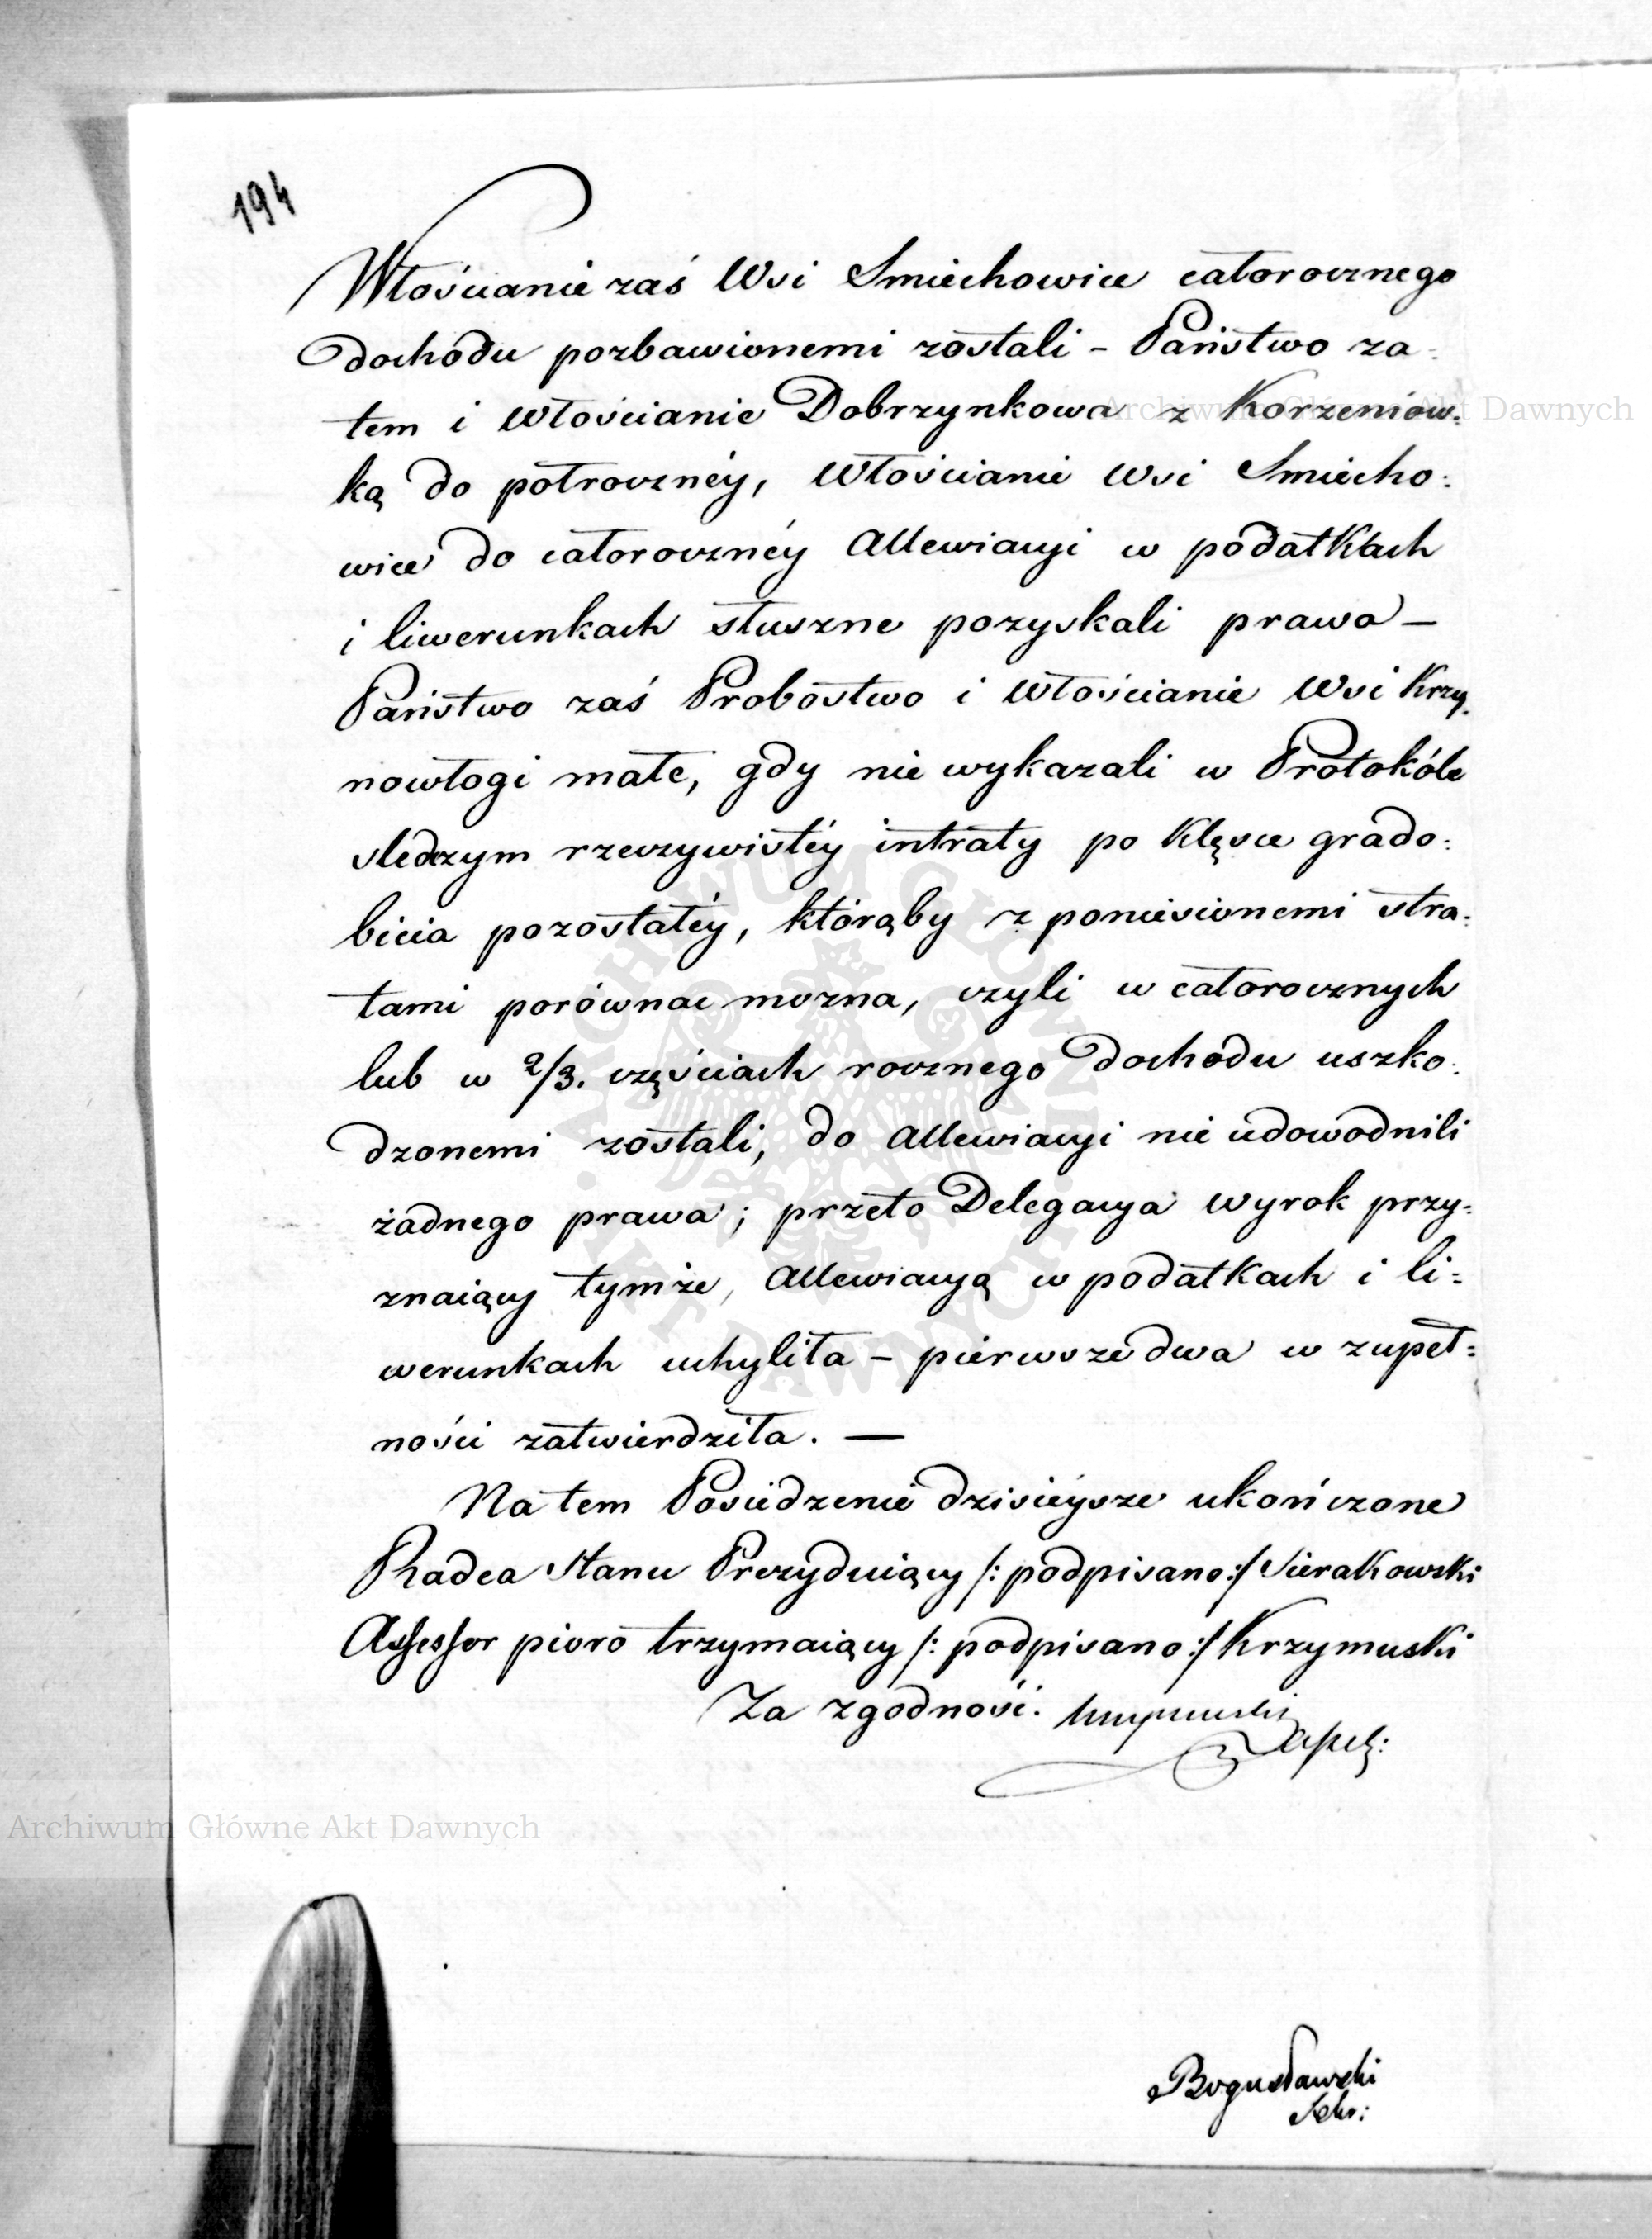 194
Włościanie zaś Wsi Smiechowice całorocznego
dochodu pozbawionemi zostali – Państwo za-
tem i Włościanie Dobrzynkowa z Korzeniow:
ką do półrocznéy, Włościanie Wsi Smiecho:
wice do całorocznéy Allewiacyi w podatkach
i liwerunkach słuszne pozyskali prawa –
Państwo zaś Probostwo i Włościanie Wsi Krzy:
nowłogi małe, gdy nie wykazali w Protokóle
sledczym rzeczywistéy intraty po klęsce grado:
bicia pozostałéy, którąby z poniesionemi stra:
tami porównac mozna, czyli w całorocznych
lub w 2/3. częściach rocznego dochodu uszko:
dzonemi zostali, do Allewiacyi nie udowodnili
żadnego prawa; przeto Delegacya wyrok przy:
znaiący tymże, Allewiacyą w podatkach i li=
werunkach uchyliła – pierwsze dwa w zupeł=
ności zatwierdziła. —
Na tem Posiedzenie dzisieysze ukończone
Radca Stanu Prezyduiący /: podpisano :/ Sierakowski
Assessor pioro trzymaiący /: podpisano :/ Krzymuski
Za zgodność. Krzymuski
Bogusławski
Sekr:
Archiwum Główne Akt Dawnych
Archiwum Główne Akt Dawnych
ARCHIWUM GŁÓWNE AKT DAWNYCH